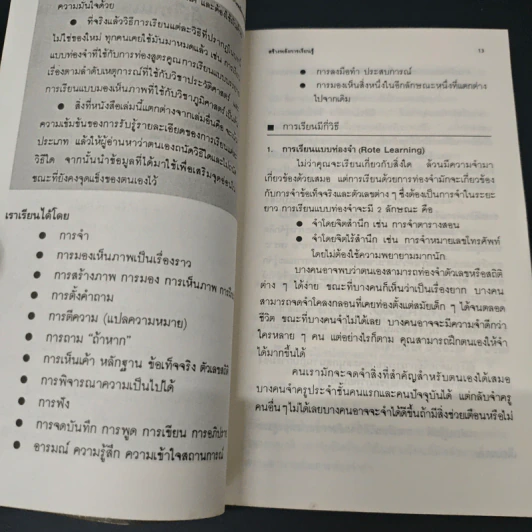 ความมั่นใจด้วย
● ที่จริงแล้ววิธีการเรียนแต่ละวิธีที่ปรากฏใน
ไม่ใช่ของใหม่ ทุกคนเคยใช้มันมาหมดแล้ว เช่น การเรียน
แบบท่องจำที่ใช้กับการท่องสูตรคูณ การเรียนแบบ
เรื่องตามลำดับเหตุการณ์ที่ใช้กับวิชาประวัติศาสตร์
การเรียนแบบมองเห็นภาพที่ใช้กับวิชาภูมิศาสตร์
● สิ่งที่หนังสือเล่มนี้แตกต่างจากเล่มอื่นคือ
ความเข้มข้นของการรับรู้รายละเอียดของการเรียน
ประเภท แล้วให้ผู้อ่านหาว่าตนเองถนัดวิธีใดและไม่
วิธีใด จากนั้นนำข้อมูลที่ได้มาใช้เพื่อเสริมจุดอ่อน
ขณะที่ยังคงจุดแข็งของตนเองไว้
เราเรียนได้โดย
● การจำ
● การมองเห็นภาพเป็นเรื่องราว
● การสร้างภาพ การมอง การเห็นภาพ
● การตั้งคำถาม
● การตีความ (แปลความหมาย)
● การถาม "ถ้าหาก"
● การเห็นเค้า หลักฐาน ข้อเท็จจริง ตัวเลขสถิติ
● การพิจารณาความเป็นไปได้
● การฟัง
● การจดบันทึก การพูด การเขียน การอภิปราย
● อารมณ์ ความรู้สึก ความเข้าใจสถานการณ์
สร้างพลังการเรียนรู้ 13
● การลงมือทำ ประสบการณ์
● การมองเห็นสิ่งหนึ่งในอีกลักษณะหนึ่งที่แตกต่าง
ไปจากเดิม
■ การเรียนมีกี่วิธี
1. การเรียนแบบท่องจำ (Rote Learning)
ไม่ว่าคุณจะเรียนเกี่ยวกับสิ่งใด ล้วนมีความจำมา
เกี่ยวข้องด้วยเสมอ แต่การเรียนด้วยการท่องจำมักจะเกี่ยวข้อง
กับการจำข้อเท็จจริงและตัวเลขต่าง ๆ ซึ่งต้องเป็นการจำในระยะ
ยาว การเรียนแบบท่องจำจะมี 2 ลักษณะ คือ
● จำโดยจิตสำนึก เช่น การจำตารางสอน
● จำโดยจิตไร้สำนึก เช่น การจำหมายเลขโทรศัพท์
โดยไม่ต้องใช้ความพยายามมากนัก
บางคนอาจพบว่าตนเองสามารถท่องจำตัวเลขหรือสถิติ
ต่าง ๆ ได้ง่าย ขณะที่บางคนก็เห็นว่าเป็นเรื่องยาก บางคน
สามารถจดจำโคลงกลอนที่เคยท่องตั้งแต่สมัยเด็ก ๆ ได้จนตลอด
ชีวิต ขณะที่บางคนจำไม่ได้เลย บางคนอาจจะมีความจำดีกว่า
ใครหลาย ๆ คน แต่อย่างไรก็ตาม คุณสามารถฝึกตนเองให้จำ
ได้มากขึ้นได้
คนเรามักจะจดจำสิ่งที่สำคัญสำหรับตนเองได้เสมอ
บางคนจำครูประจำชั้นคนแรกและคนปัจจุบันได้ แต่กลับจำครู
คนอื่นๆไม่ได้เลยบางคนอาจจะจำได้ดีขึ้นถ้ามีสิ่งช่วยเตือนหรือไม่